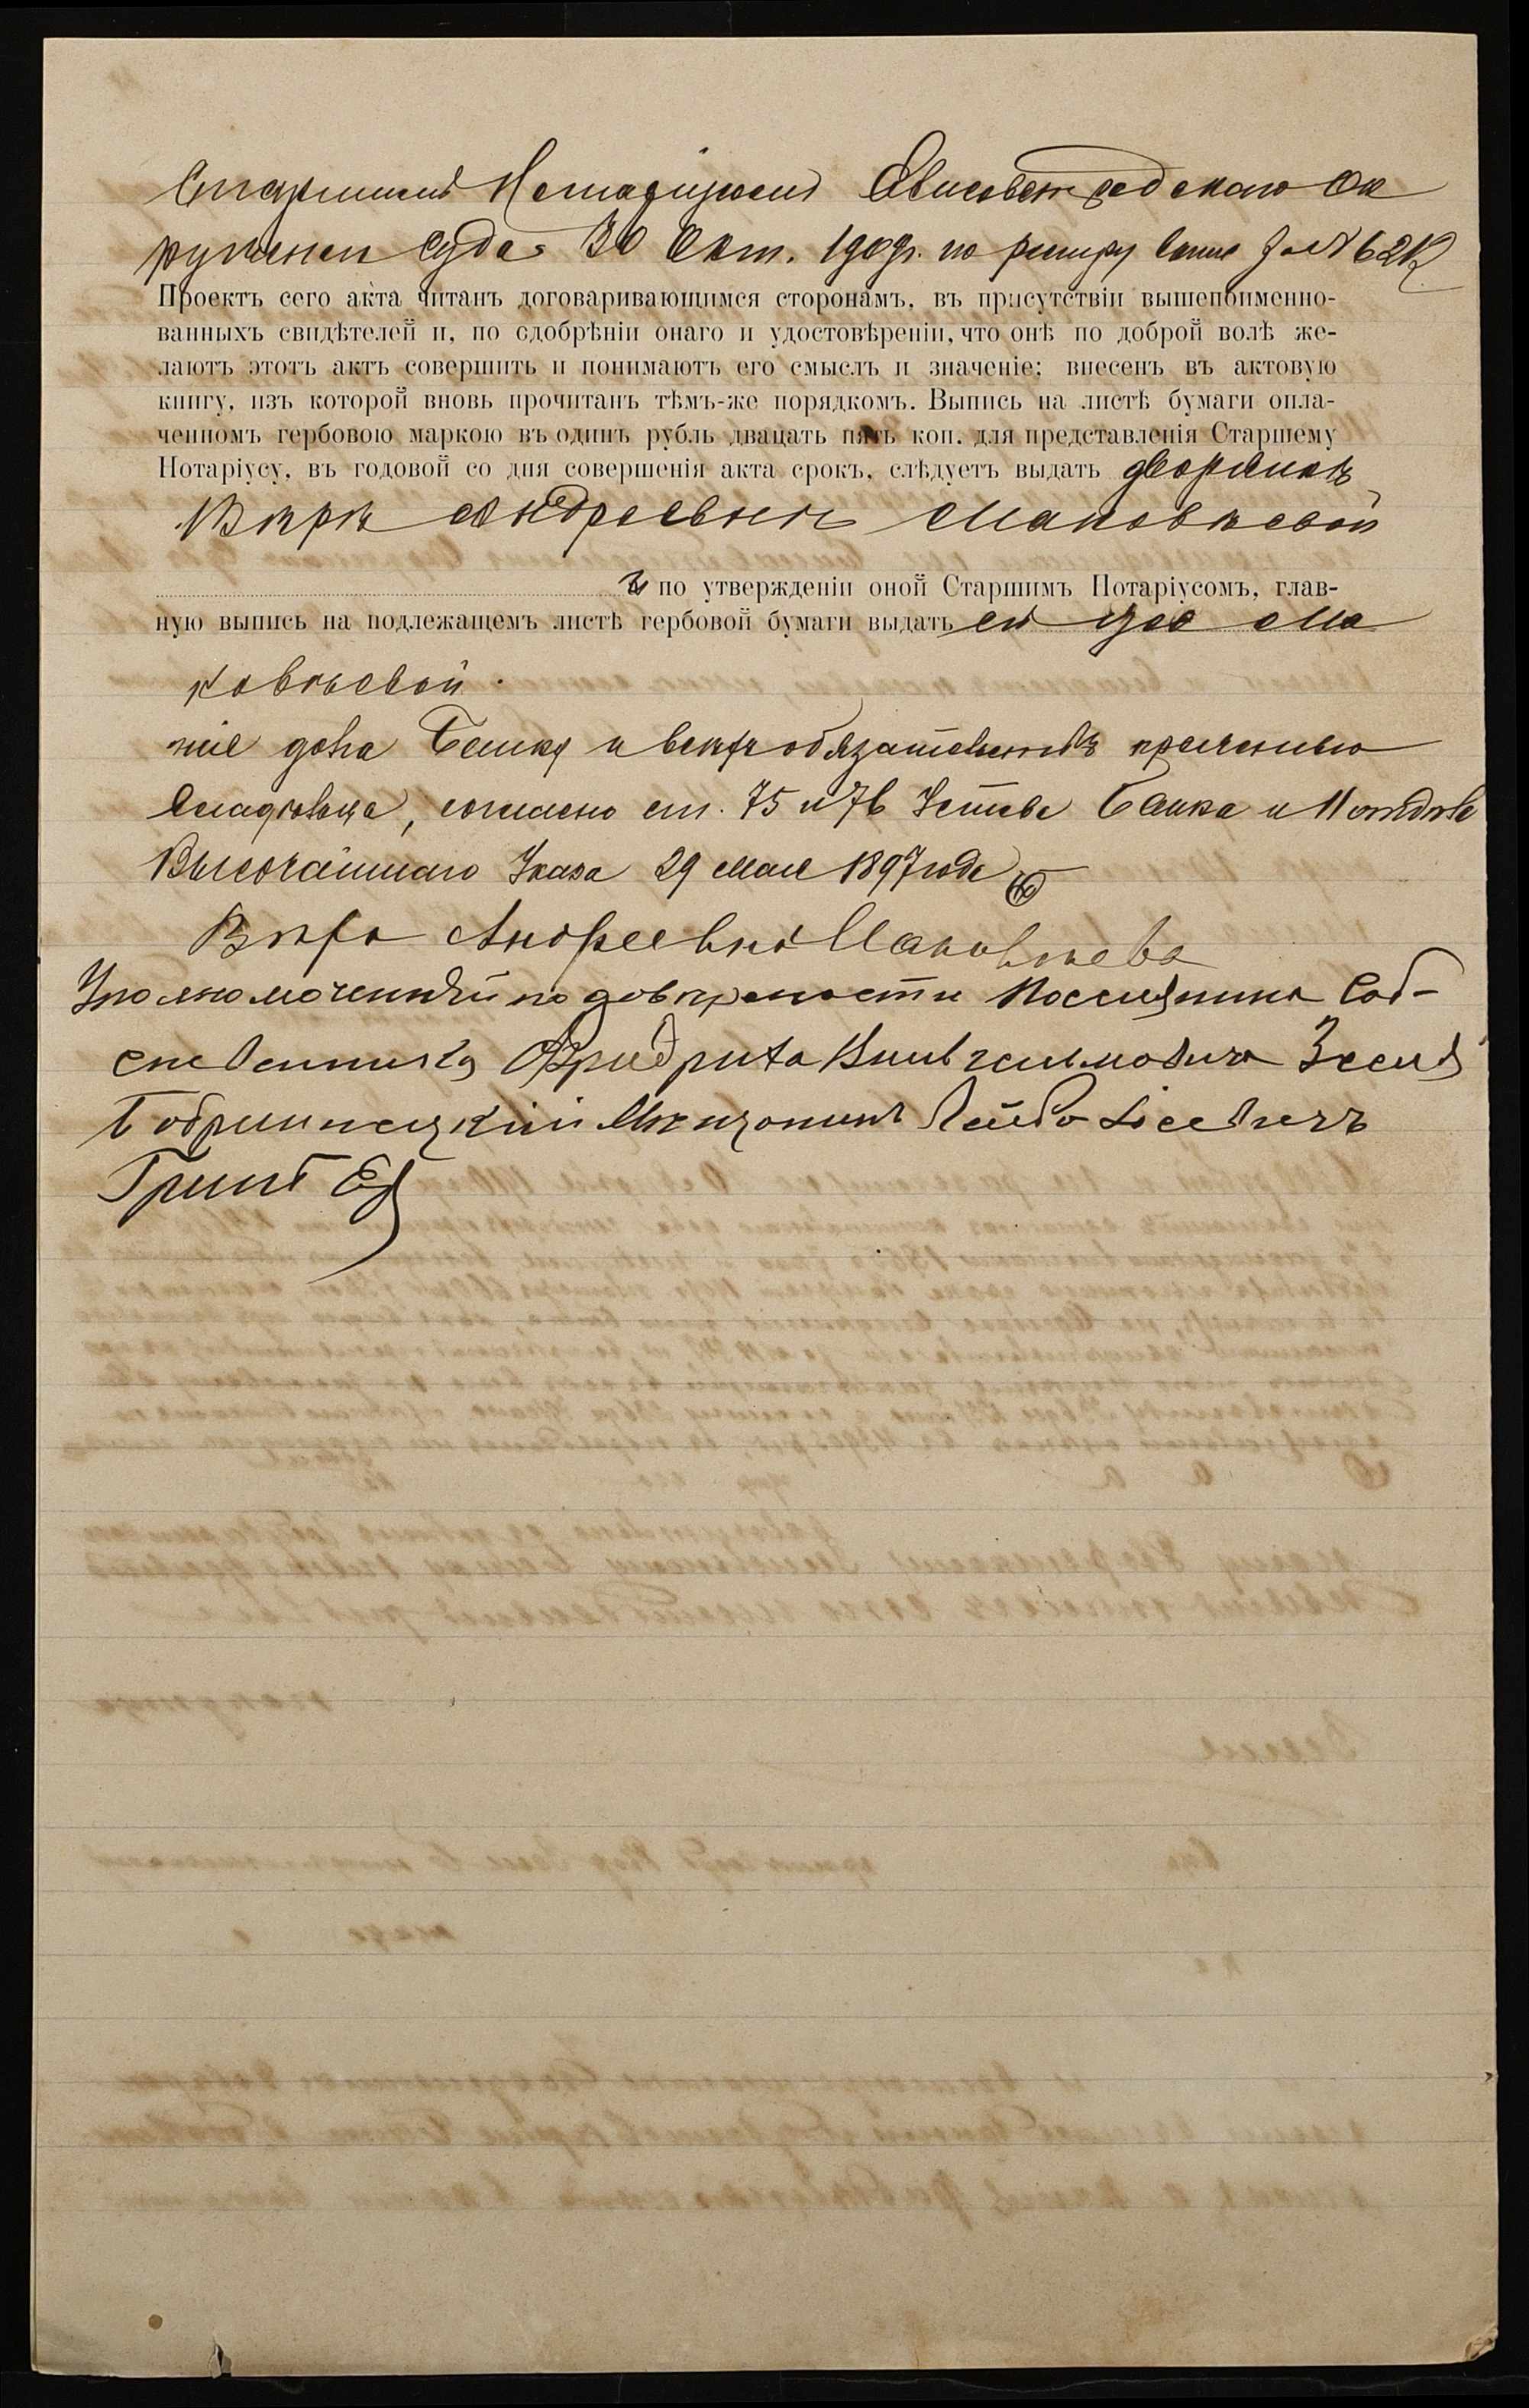 Старшимъ Нотаріусомъ Елисаветградскаго Ок
ружнаго Суда 30 Окт. 1909г. по реестру
Проектъ сего акта читанъ договаривающимся сторонамъ, въ присутствіи вышепоименно-
ванныхъ свидѣтелей и, по одобрѣніи онаго и удостовѣреніи, что онѣ по доброй волѣ же-
лаютъ этотъ актъ совершить и понимаютъ его смыслъ и значеніе; внесенъ въ актовую
книгу, изъ которой вновь прочитанъ тѣмъ-же порядкомъ. Выпись на листѣ бумаги опла-
ченномъ гербовою маркою въ одинъ рубль двацать пять коп. для представленія Старшему
Нотаріусу, въ годовой со дня совершенія акта срокъ, слѣдуетъ выдать дворянкѣ
Вѣрѣ Андреевнѣ Маковѣевой
и по утвержденіи оной Старшимъ Нотаріусомъ, глав-
ную выпись на подлежащемъ листѣ гербовой бумаги выдать ей же Ма
ковѣевой.
ніе долга Банку и всѣхъ обязательствъ прежнего
владѣльца, согласно ст. 75 и 76 Устава Банка и II отдѣла
Высочайшаго Указа 29 Мая 1897 года
Вѣра Андреевна Маковѣева
Уполномоченный по довѣренности Поселянина Соб-
ственника Фридриха Вильгельмовича Зееля
Бобринецкій Мѣщанинъ Лейба
Гринб